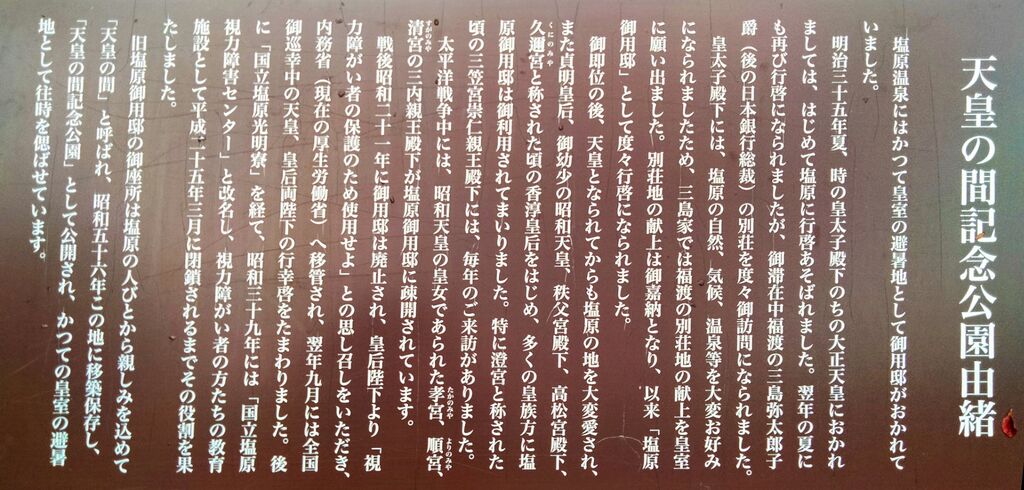 天皇の間記念公園由緒
塩原温泉にはかつて皇室の避暑地として御用邸がおかれて
いました。
明治三十五年夏、時の皇太子殿下のちの大正天皇におかれ
ましては、はじめて塩原に行啓あそばれました。翌年の夏に
も再び行啓になられましたが、御滞在中福渡の三島弥太郎子
爵（後の日本銀行総裁）の別荘を度々御訪問になられました。
皇太子殿下には、塩原の自然、気候、温泉等を大変お好み
になられましたため、三島家では福渡の別荘地の献上を皇室
に願い出ました。別荘地の献上は御嘉納となり、以来「塩原
御用邸」として度々行啓になられました。
御即位の後、天皇となられてからも塩原の地を大変愛され、
また貞明皇后、御幼少の昭和天皇、秩父宮殿下、高松宮殿下、
久邇宮と称された頃の香淳皇后をはじめ、多くの皇族方に塩
くにのみや
原御用邸は御利用されてまいりました。特に澄宮と称された
頃の三笠宮崇仁親王殿下には、毎年のご来訪がありました。
太平洋戦争中には、昭和天皇の皇女であられた孝宮、順宮、
たかのみや よりのみや
清宮の三内親王殿下が塩原御用邸に疎開されています。
すがのみや
戦後昭和二十一年に御用邸は廃止され、皇后陛下より「視
力障がい者の保護のため使用せよ」との思し召しをいただき、
内務省（現在の厚生労働省）へ移管され、翌年九月には全国
御巡幸中の天皇、皇后両陛下の行幸啓をたまわりました。後
に「国立塩原光明寮」を経て、昭和三十九年には「国立塩原
視力障害センター」と改名し、視力障がい者の方たちの教育
施設として平成二十五年三月に閉鎖されるまでその役割を果
たしました。
旧塩原御用邸の御座所は塩原の人びとから親しみを込めて
「天皇の間」と呼ばれ、昭和五十六年この地に移築保存し、
「天皇の間記念公園」として公開され、かつての皇室の避暑
地として往時を偲ばせています。